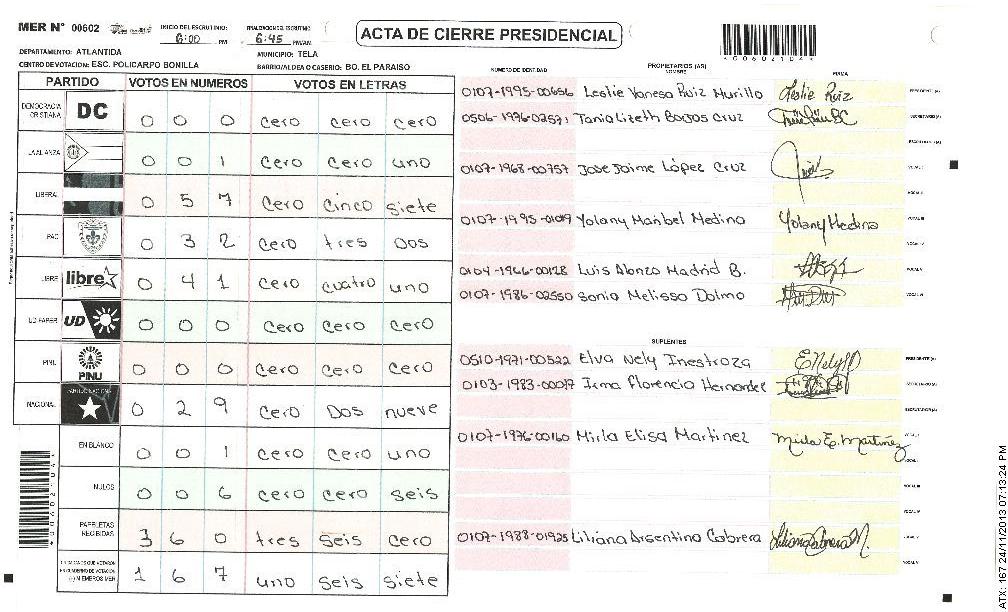 MER N° 00602
INICIO DEL ESCRUTINIO: 6:00 PM
FINALIZACION DEL ESCRUTINIO 6:45 PM/AM
ACTA DE CIERRE PRESIDENCIAL
*00602104*
DEPARTAMENTO: ATLANTIDA
MUNICIPIO: TELA
CENTRO DE VOTACION: ESC. POLICARPO BONILLA
BARRIO/ALDEA O CASERIO: BO. EL PARAISO
NUMERO DE IDENTIDAD PROPIETARIOS (AS) NOMBRE FIRMA
PARTIDO VOTOS EN NUMEROS VOTOS EN LETRAS
DEMOCRACIA CRISTIANA DC 0 0 0 cero cero cero
LA ALIANZA 0 0 1 cero cero uno
LIBERAL 0 5 7 cero cinco siete
PAC 0 3 2 cero tres dos
LIBRE libre 0 4 1 cero cuatro uno
UD-FAPER UD 0 0 0 cero cero cero
PINU PINU 0 0 0 cero cero cero
NACIONAL 0 2 9 cero Dos nueve
EN BLANCO 0 0 1 cero cero uno
NULOS 0 0 6 cero cero seis
PAPELETAS RECIBIDAS 3 6 0 tres seis cero
1 6 7 uno seis siete
0107-1995-00656 Leslie Vanesa Ruiz Murillo Leslie Ruiz PRESIDENTE (A)
0506-1976-02571 Tania Lizeth Barjas Cruz SECRETARIO (A)
ESCRUTADOR (A)
0107-1968-00757 Jose Jaime López Cruz VOCAL I
VOCAL II
0107-1995-01019 Yolany Maribel Medina Yolany Medina VOCAL III
VOCAL IV
0104-1966-00128 Luis Alonzo Madrid B. VOCAL V
0107-1986-02550 Sonia Melissa Dolmo VOCAL VI
SUPLENTES
0510-1971-00522 Elva Nely Inestroza PRESIDENTE (A)
0103-1983-00097 Irma Florencia Hernandez SECRETARIO (A)
ESCRUTADOR (A)
0107-1976-00160 Mirla Elisa Martinez Mirla E. Martinez VOCAL I
VOCAL II
VOCAL III
VOCAL IV
0107-1988-01925 Liliana Arsentina Cabrera VOCAL V
VOCAL VI
*00602104*
ATX: 167.24/11/2013 07:13:24 PM